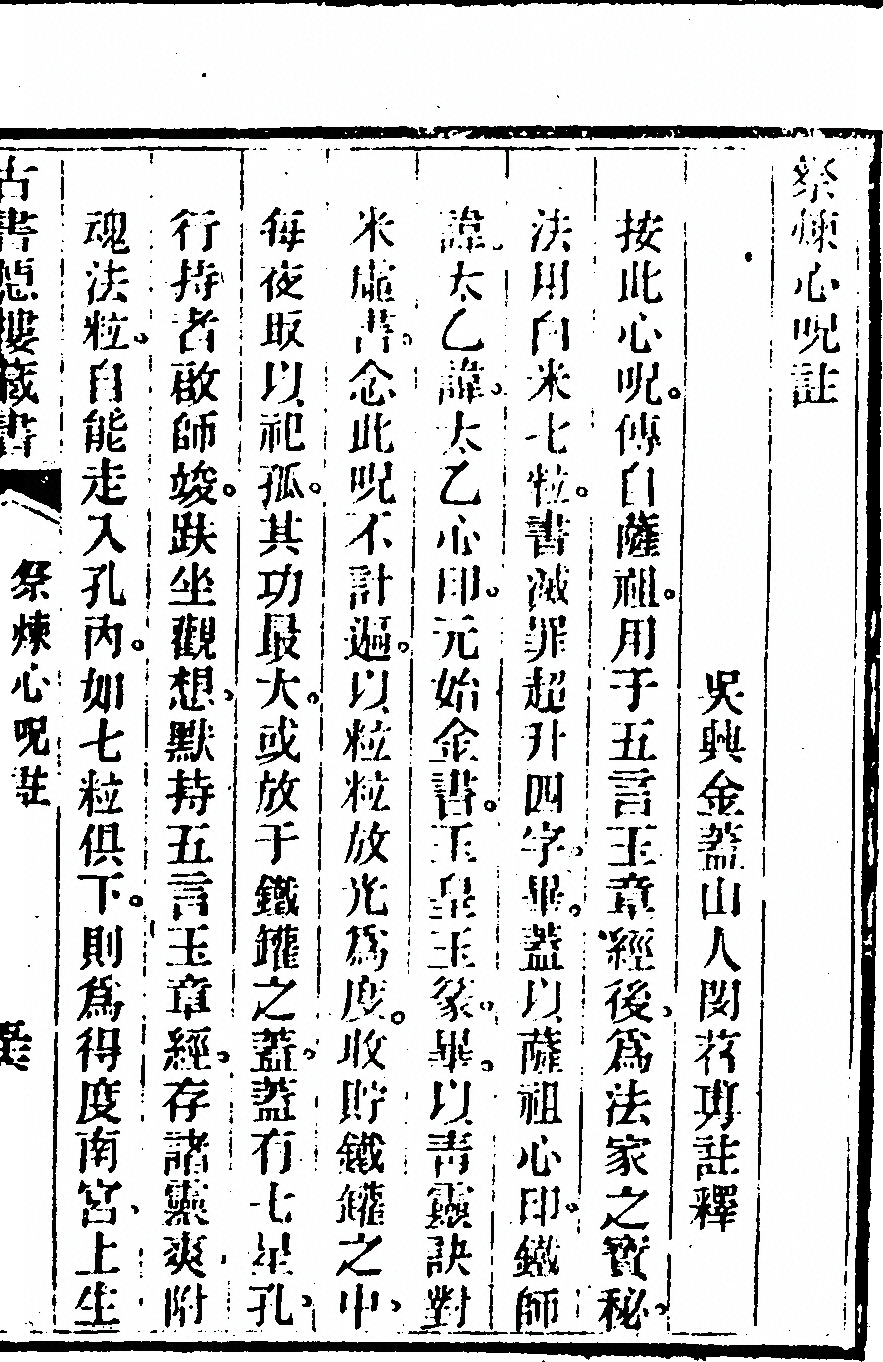 祭煉心呪註
吳興金蓋山人閔苕旉註釋
按此心呪。傳自薩祖。用于五言玉章經後、爲法家之寶秘、
法用白米七粒。書滅罪超升四字、畢。蓋以薩祖心印、鐵師
諱、太乙諱、太乙心印。元始金書。玉皇玉篆。畢。以靑靈訣對
米虛書。念此呪不計遍。以粒粒放光爲度。收貯鐵鑵之中、
每夜取以祀孤。其功最大。或放于鐵鑵之蓋、蓋有七星孔、
行持者啟師竣。趺坐觀想、默持五言玉章經、存諸靈爽附
魂法粒。自能走入孔內。如七粒俱下。則爲得度南宮、上生
古書隱樓藏書
祭煉心呪註